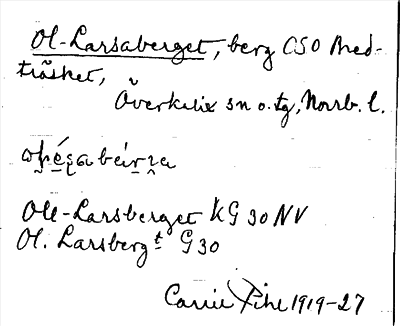 Ol-Larsaberget, berg OSO Bred-
träsket,
Överkalix sn o. tg, Norrb. l.
Ole-Larsberget KG 30 NV
Ol. Larsberg t G 30
Carrie Pihl 1919-27